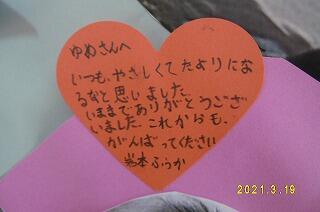 ゆめさんへ
いつも、やさしくてたよりにな
るなと思いました。
いままでありがとうござ
いました。これからも、
がんばってください
岩本ふうか
2021.3.19